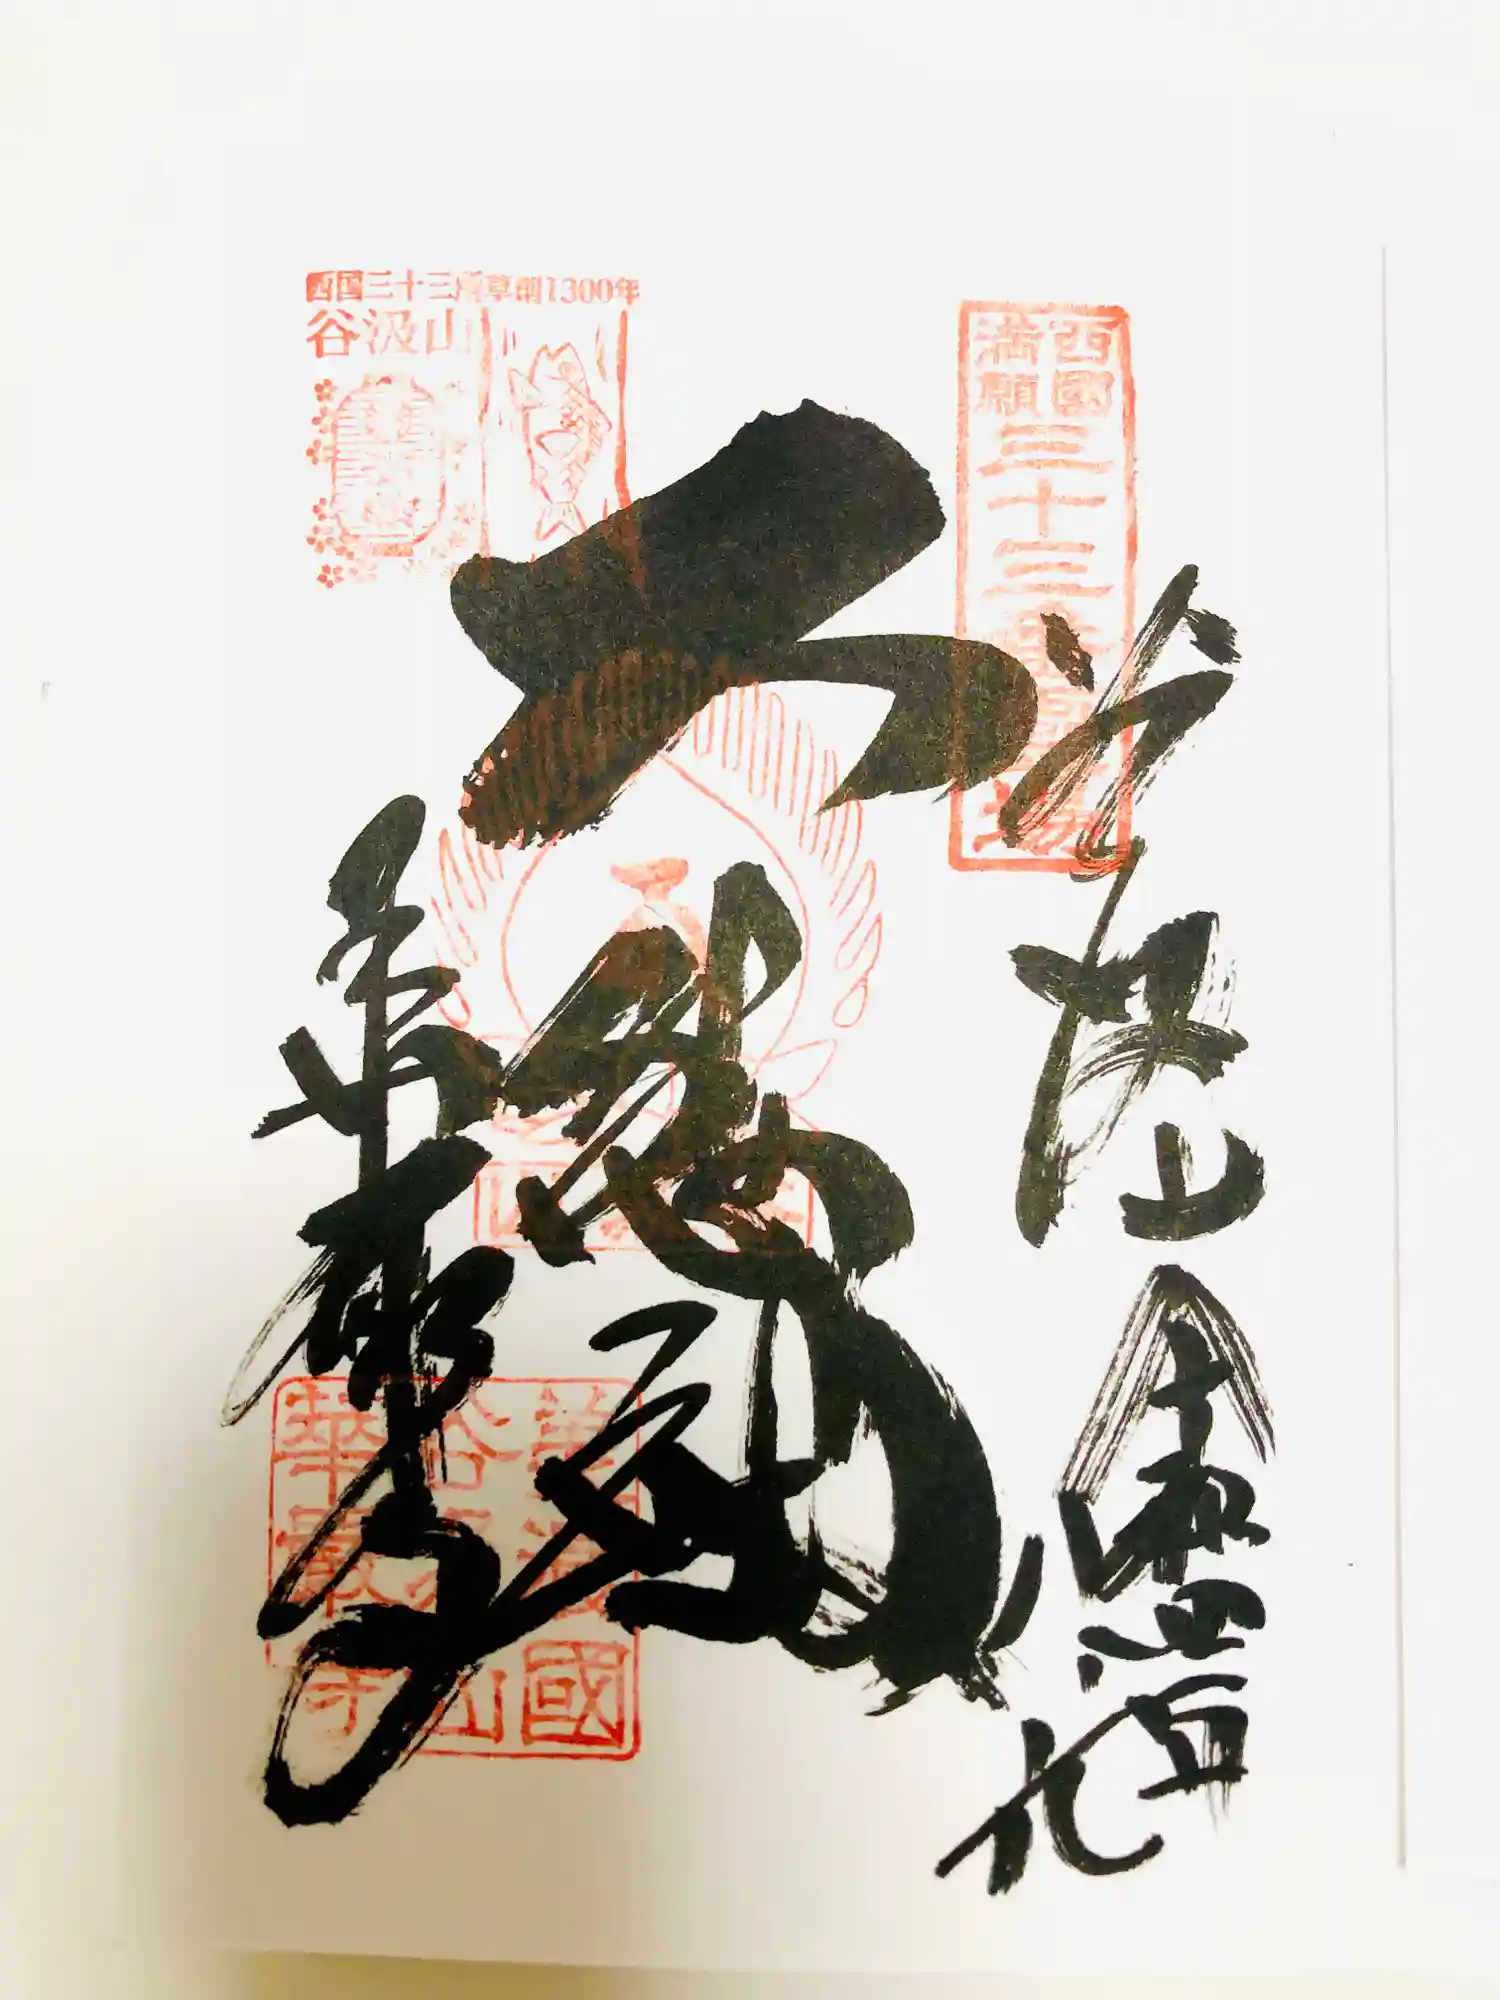 西国三十三所草創1300年
谷汲山
西國
満願
三十三番霊場
谷汲山
令和四 五 九
大悲殿
華厳寺
美濃國
谷汲山
華嚴寺